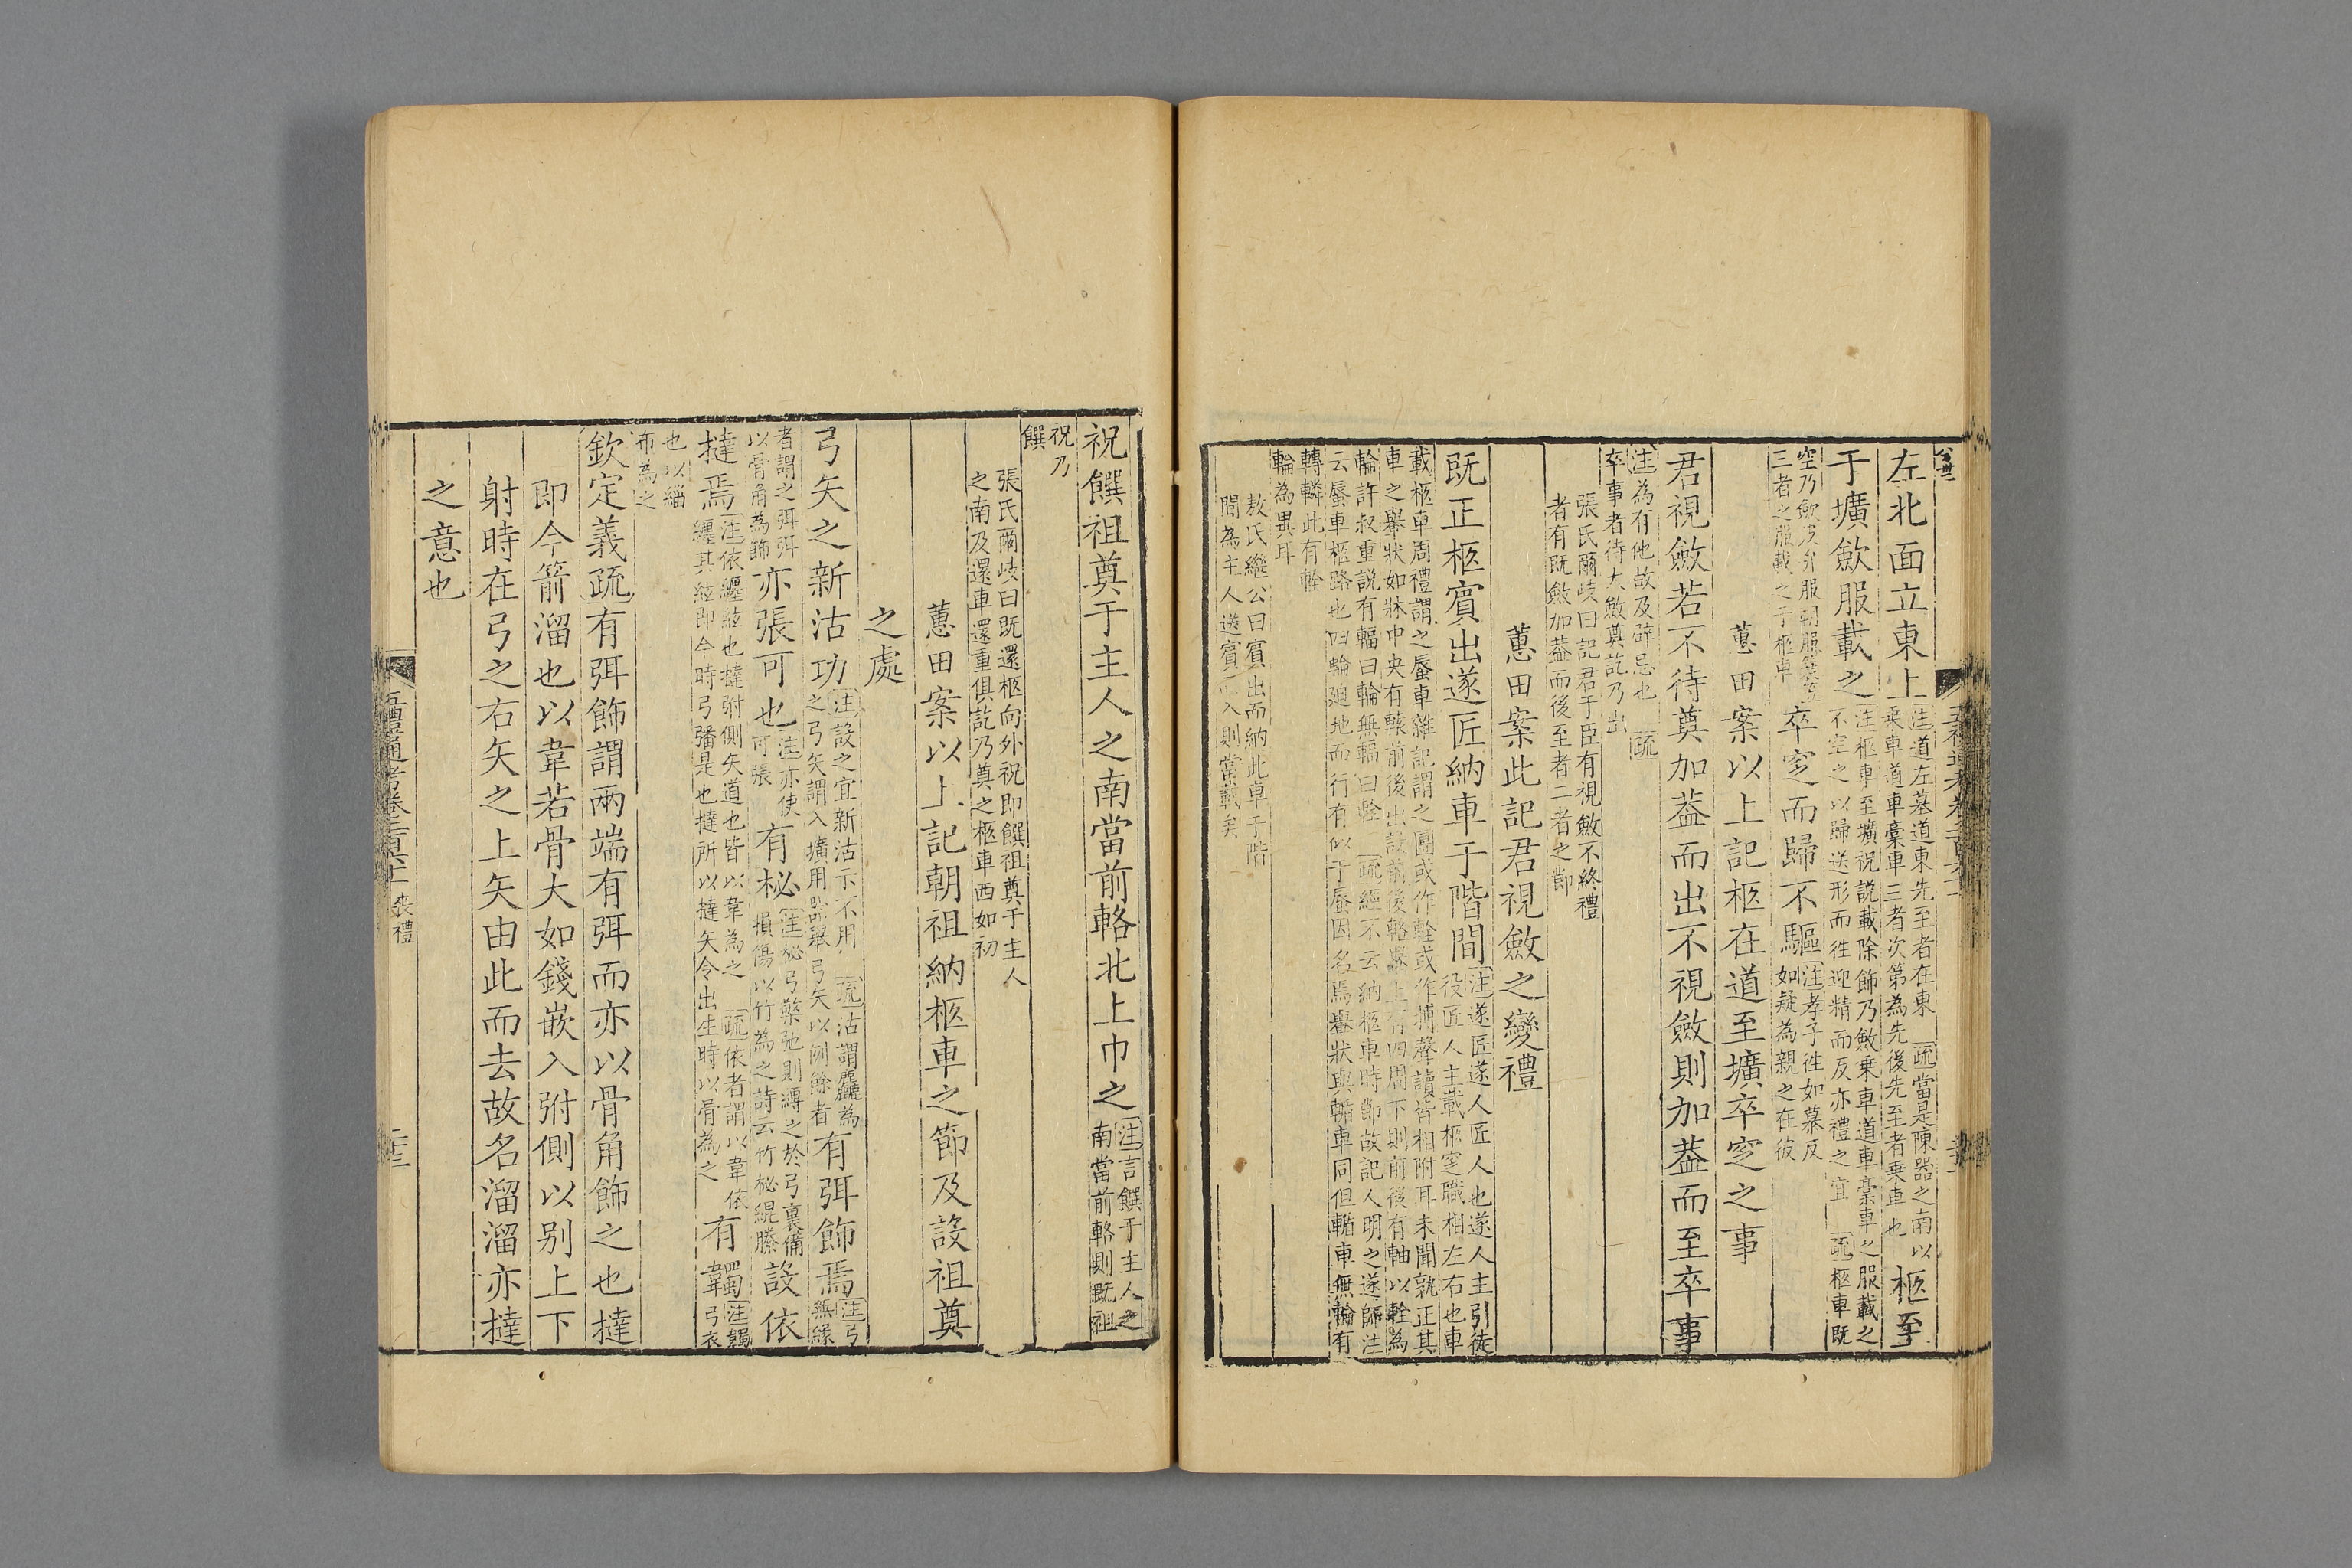 左北面立東上注道左墓道東先至者在東 疏當是陳器之南以乗車道車槀車三者次第為先後先至者乗車也柩至
于壙斂服載之注柩車至壙祝説載除飾乃斂乗車道車槀車之服載之不空之以歸送形而徃迎精而反亦禮之宜 疏柩車既
空乃斂皮弁服朝服簑笠三者之服載之于柩車 卒窆而歸不驅注孝子徃如慕反如疑為親之在彼
蕙田案以上記柩在道至壙卒窆之事
君視斂若不待奠加葢而出不視斂則加葢而至卒事
注為有他故及辟忌也 疏卒事者待大斂奠訖乃出
張氏爾岐曰記君于臣有視斂不終禮者有既斂加葢而後至者二者之節
蕙田案此記君視斂之變禮
既正柩賓出遂匠納車于階間注遂匠遂人匠人也遂人主引徒役匠人主載柩窆職相左右也車
載柩車周禮謂之蜃車雜記謂之團或作輇或作摶聲讀皆相附耳未聞孰正其車之轝狀如牀中央有轅前後出設前後輅轝上有四周下則前後有軸以輇為
輪許叔重説有輻曰輪無輻曰輇 疏經不云納柩車時節故記人明之遂師注云蜃車柩路也四輪廹地而行有似于蜃因名焉轝狀與輴車同但輴車無輪有
轉轔此有輇輪為異耳
敖氏繼公曰賓出而納此車于階間為主人送賓而入則當載矣
祝饌祖奠于主人之南當前輅北上巾之注言饌于主人之南當前輅則既祖
祝乃饌
張氏爾岐曰既還柩向外祝即饌祖奠于主人之南及還車還重俱訖乃奠之柩車西如初
蕙田案以上記朝祖納柩車之節及設祖奠
之處
弓矢之新沽功注設之宜新沽示不用 疏沽謂麤為之弓矢謂入壙用器舉弓矢以例餘者有弭飾焉注弓無緣
者謂之弭弭以骨角為飾亦張可也注亦使可張有柲注柲弓檠弛則縛之於弓裏備損傷以竹為之詩云竹柲緄縢設依
撻焉注依纏絃也撻弣側矢道也皆以韋為之 疏依者謂以韋依纏其絃即今時弓䪐是也撻所以撻矢令出生時以骨為之有韣注韣弓衣
也以緇布為之
欽定義疏有弭飾謂兩端有弭而亦以骨角飾之也撻
即今箭溜也以韋若骨大如錢嵌入弣側以别上下
射時在弓之右矢之上矢由此而去故名溜溜亦撻
之意也
五禮通考卷二百六十一 喪禮
二十三